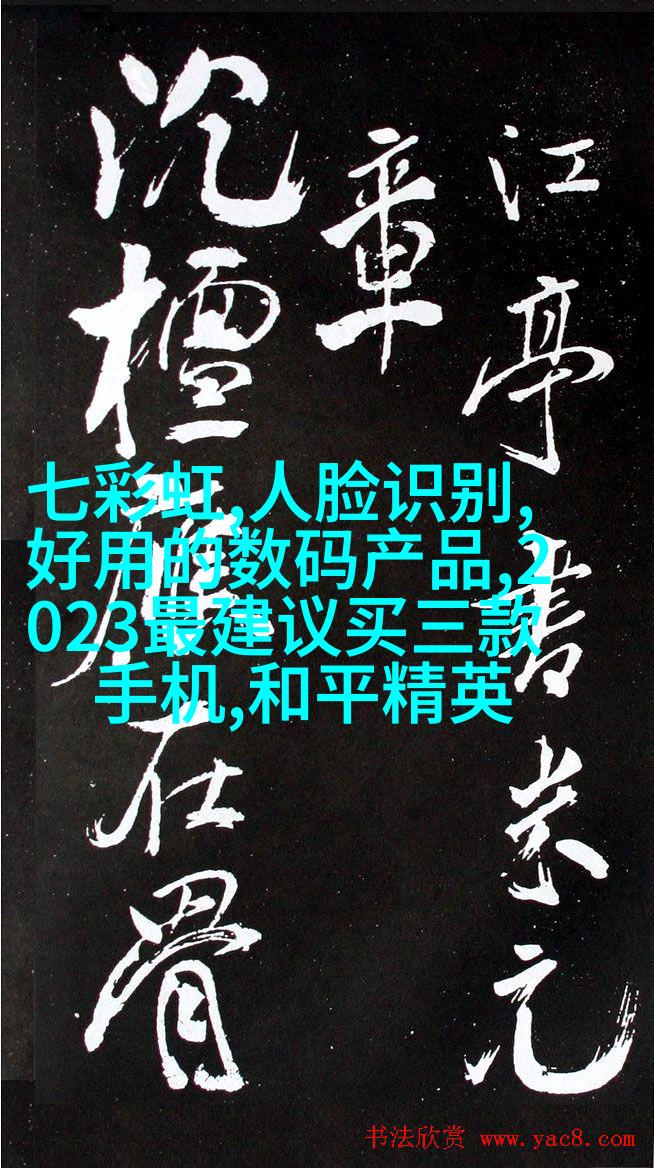 江亭書米元
章
沉檀在骨
七彩虹,人脸识别,
好用的数码产品,2
023最建议买三款
手机,和平精英
书法欣赏 www.yac8.com